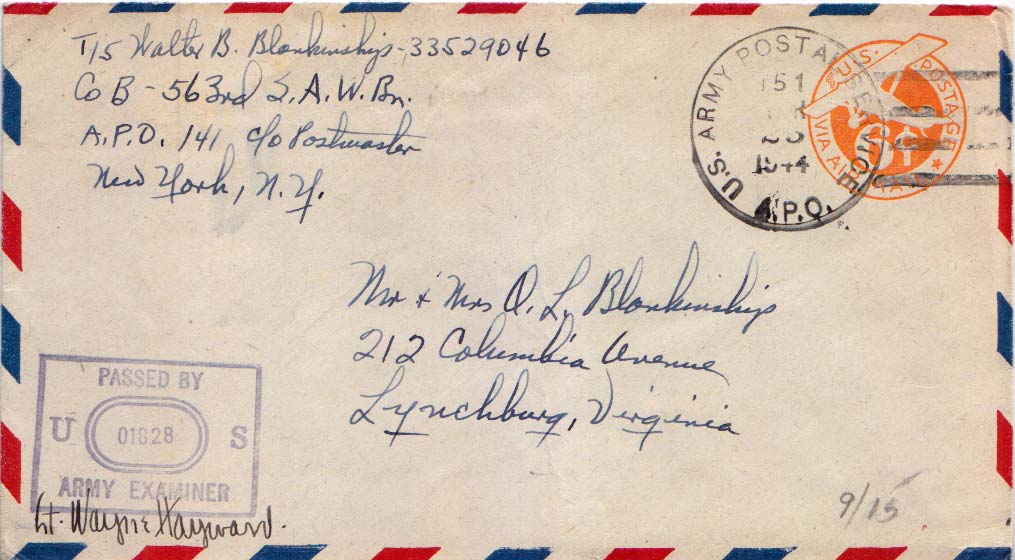 T/5 Walter B. Blankinship - 33529046
Co B - 563rd S.A.W.Bn.
A.P.O. 141 c/o Postmaster
New York, N.Y.
U.S. ARMY POSTAL SERVICE
151
1944
A.P.O.
U.S. POSTAGE
6¢
VIA AIR MAIL
Mr + Mrs O. L. Blankinship
212 Columbia Avenue
Lynchburg, Virginia
PASSED BY
U 01828 S
ARMY EXAMINER
Lt. Wayne Hayward.
9/15